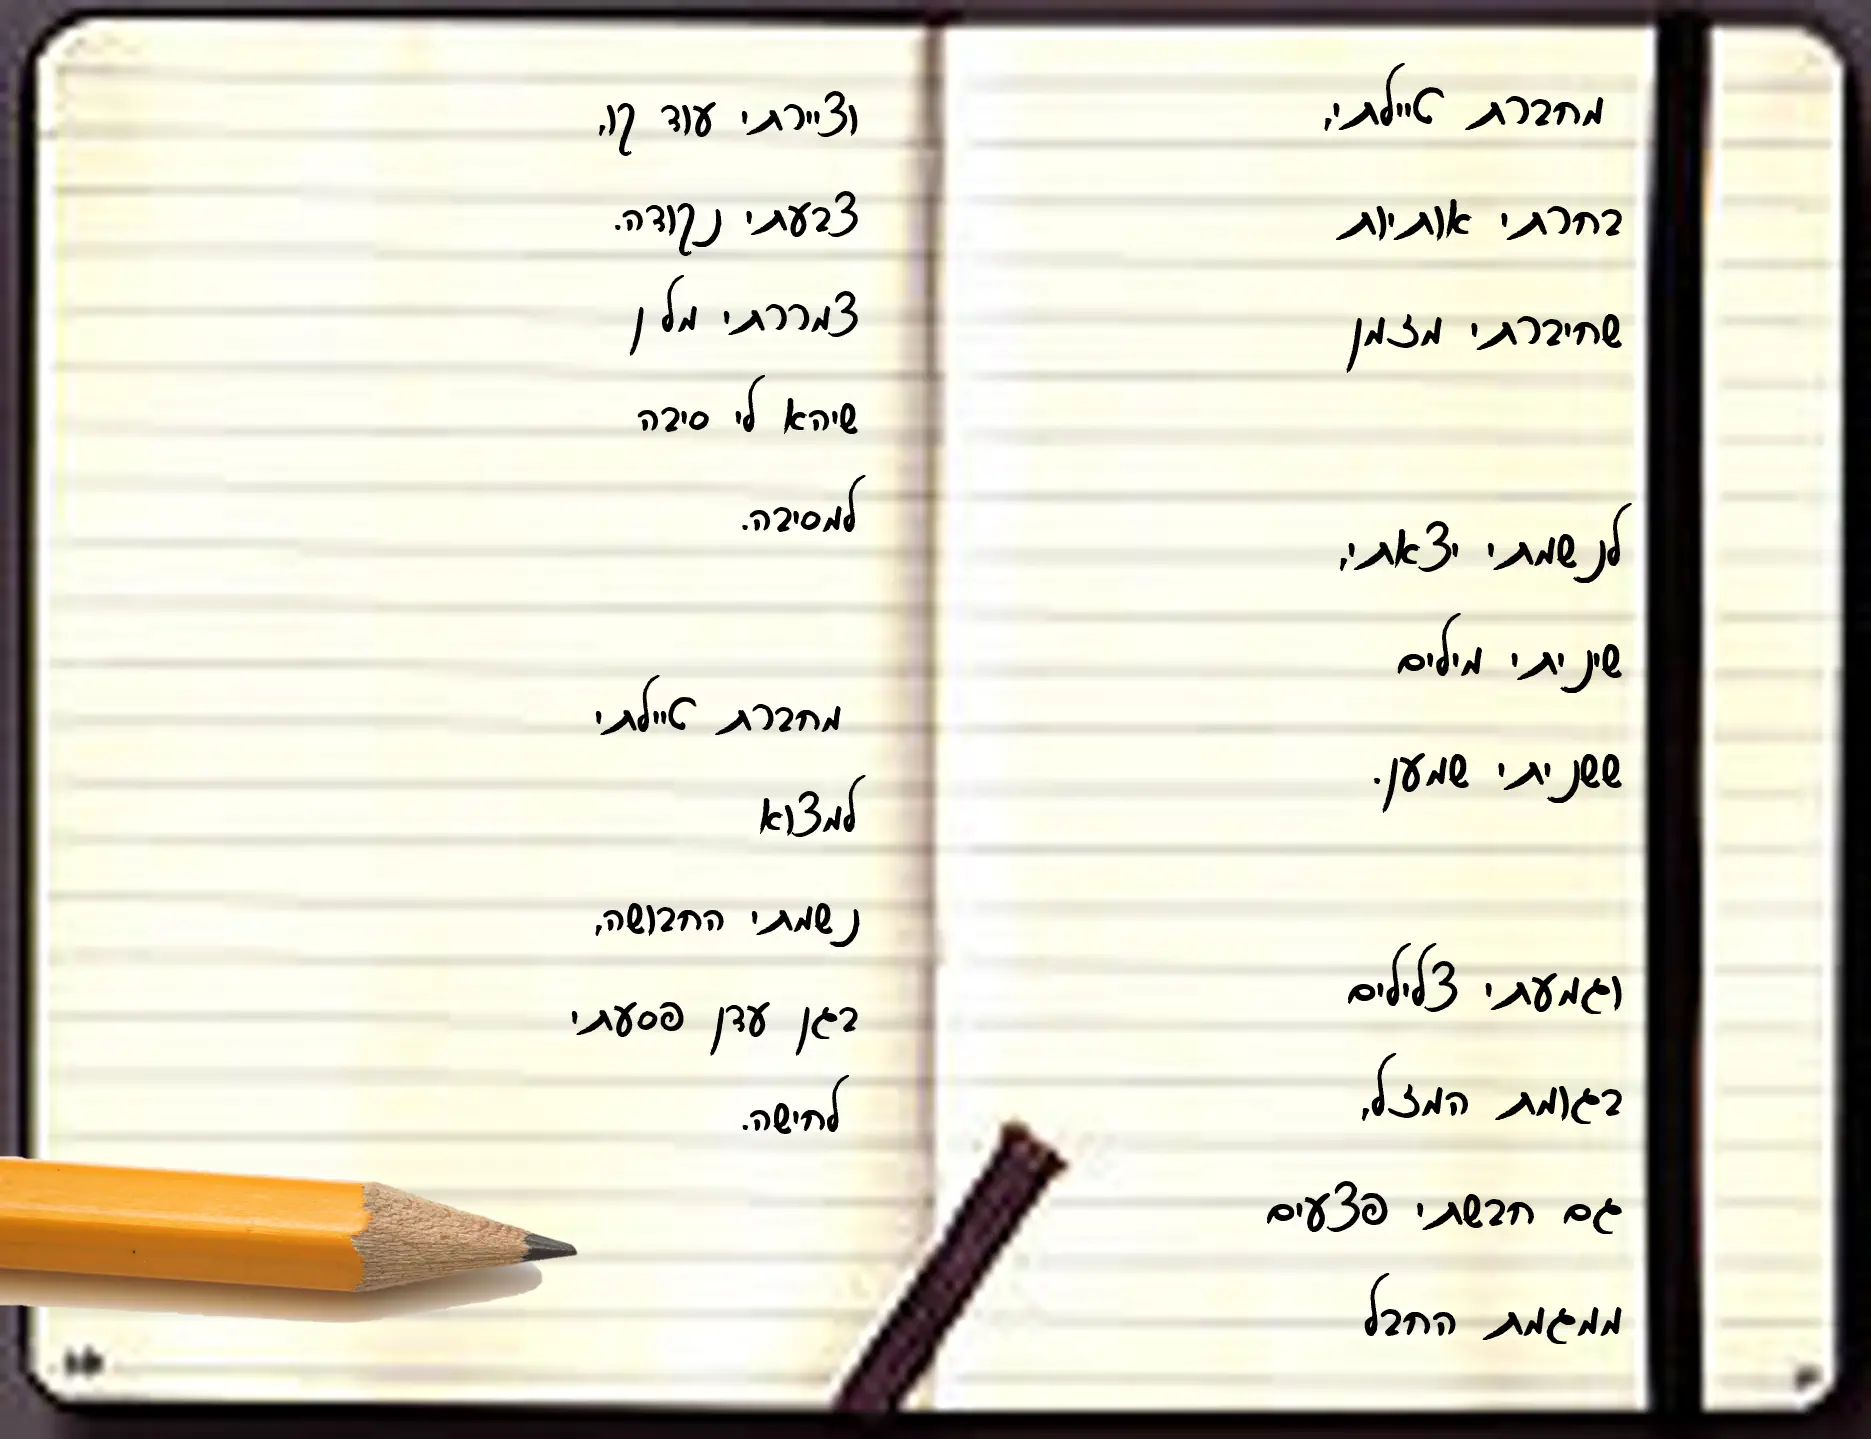 מחברת טיילתי,
בחרתי אותיות
שחיברתי מזמן
לנשמתי יצאתי,
שיניתי מילים
ששניתי שמען.
וגמעתי צלילים
בגומת המזל,
גם חבשתי פצעים
ממגמת החבל
וציירתי עוד קו,
צבעתי נקודה.
צמררתי מלן
שיהא לי סיבה
למסיבה.
מחברת טיילתי
למצוא
נשמתי החבושה,
בגן עדן פסעתי
לחישה.